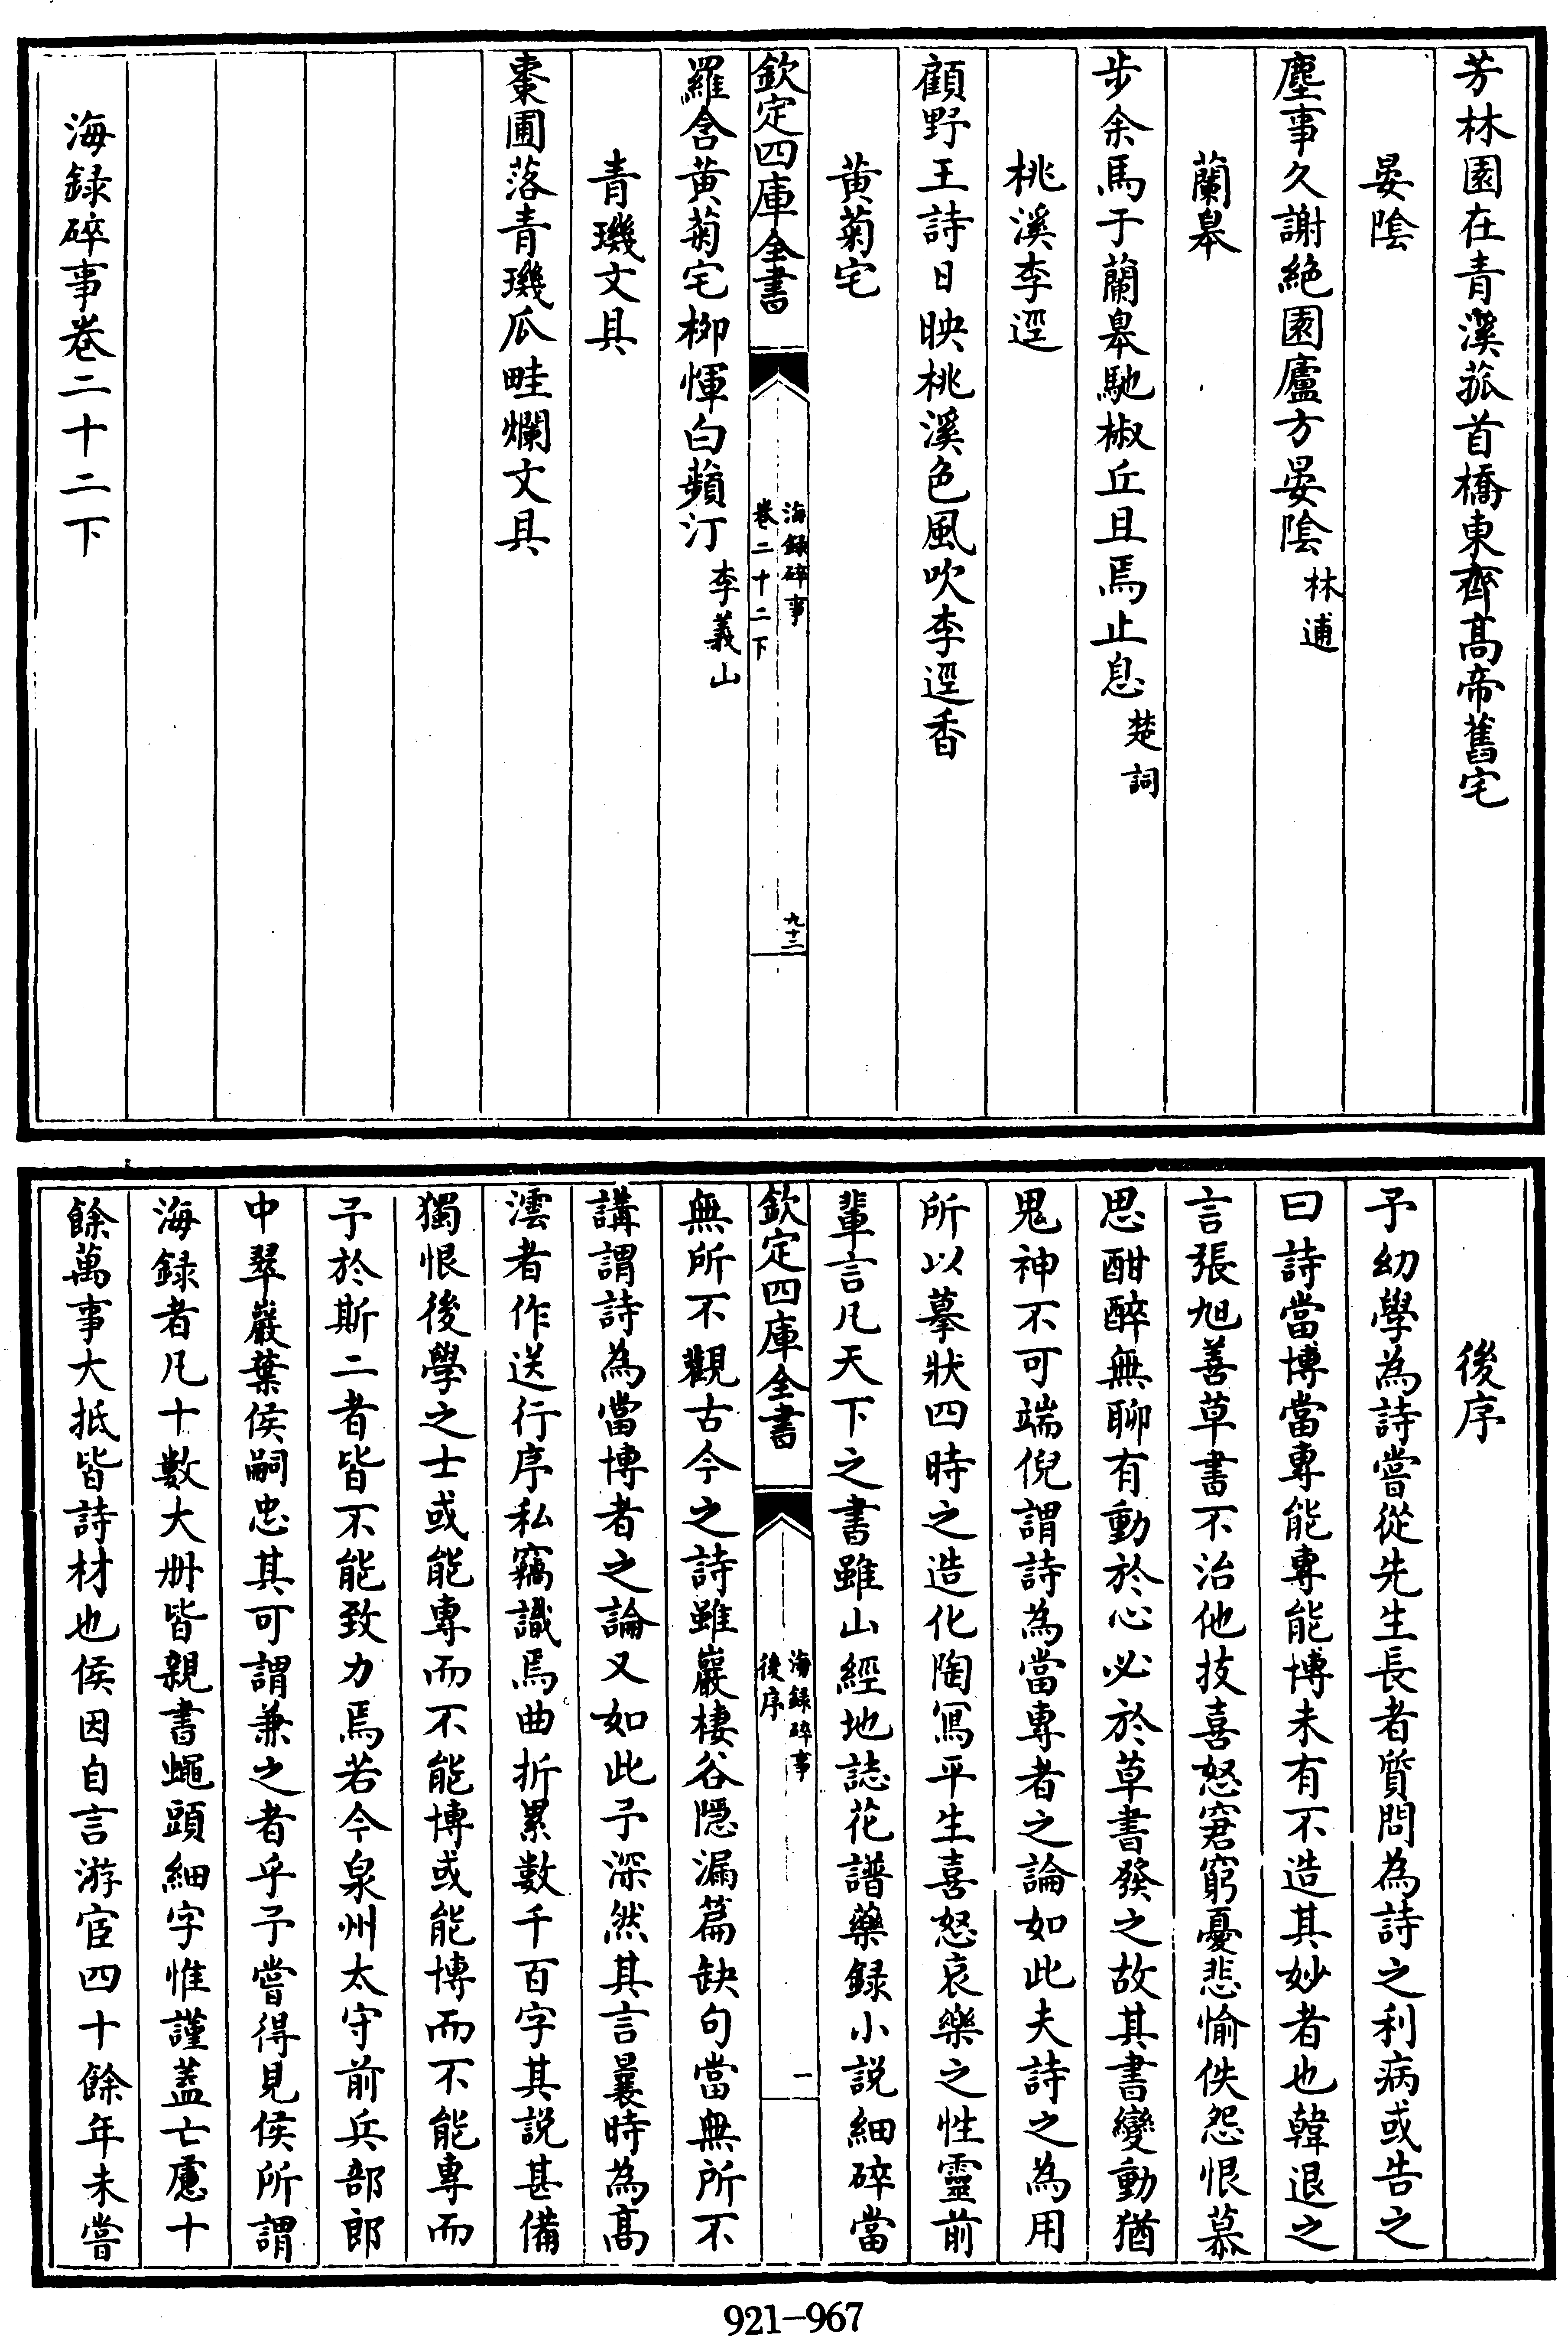 芳林園在青溪菰首橋東齊髙帝舊宅
晏隂
塵事久謝絶園廬方晏隂林逋
蘭皋
步余馬于蘭皋馳椒丘且焉止息楚詞
桃溪李逕
顧野王詩日映桃溪色風吹李逕香
黄菊宅
欽定四庫全書
海録碎事
卷二十二下
九十二
羅含黄菊宅栁惲白蘋汀李義山
青璣文具
棗圃落青璣瓜畦爛文具
海録碎事卷二十二下
後序
予幼學為詩嘗從先生長者質問為詩之利病或告之
曰詩當博當專能專能博未有不造其妙者也韓退之
言張旭善草書不治他技喜怒窘窮憂悲愉佚怨恨慕
思酣醉無聊有動於心必於草書發之故其書變動猶
鬼神不可端倪謂詩為當專者之論如此夫詩之為用
所以摹狀四時之造化陶冩平生喜怒哀樂之性靈前
輩言凡天下之書雖山經地誌花譜藥録小説細碎當
欽定四庫全書
海録碎事
後序
一
無所不觀古今之詩雖巖棲谷隠漏篇缺句當無所不
講謂詩為當博者之論又如此予深然其言曩時為髙
澐者作送行序私竊識焉曲折累數千百字其説甚備
獨恨後學之士或能專而不能博或能博而不能專而
予於斯二者皆不能致力焉若今泉州太守前兵部郎
中翠巖葉侯嗣忠其可謂兼之者乎予嘗得見侯所謂
海録者凡十數大册皆親書蠅頭細字惟謹蓋亡慮十
餘萬事大抵皆詩材也侯因自言游宦四十餘年未嘗
921-967